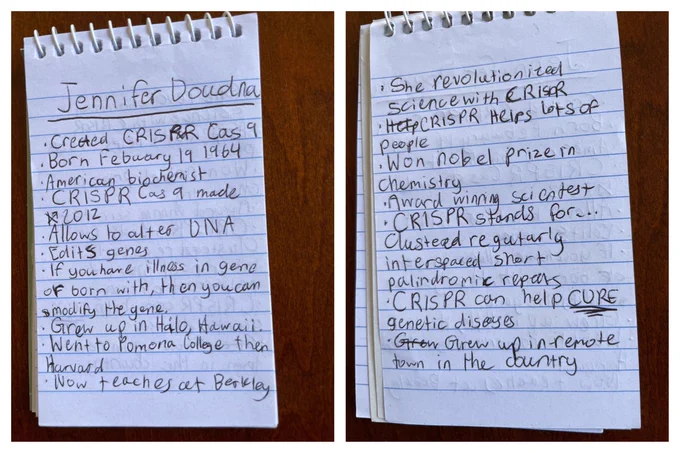 Jennifer Doudna
· Created CRISPR Cas 9
· Born Febuary 19 1964
· American biochemist
· CRISPR Cas 9 made
2012
· Allows to alter DNA
· Edits genes
· If you have illness in gene
or born with, then you can
modify the gene.
· Grew up in Halo, Hawaii.
· Went to Pomona College then
Harvard
· Now teaches at Berkley
· She revolutionized
science with CRISPR
· CRISPR Helps lots of
people
· Won nobel prize in
chemistry
· Award winng scientest
· CRISPR stands for...
Clustead regutarly
interspaced short
palindromic repeats
· CRISPR can help CURE
genetic diseases
· Grew up in remote
town in the country